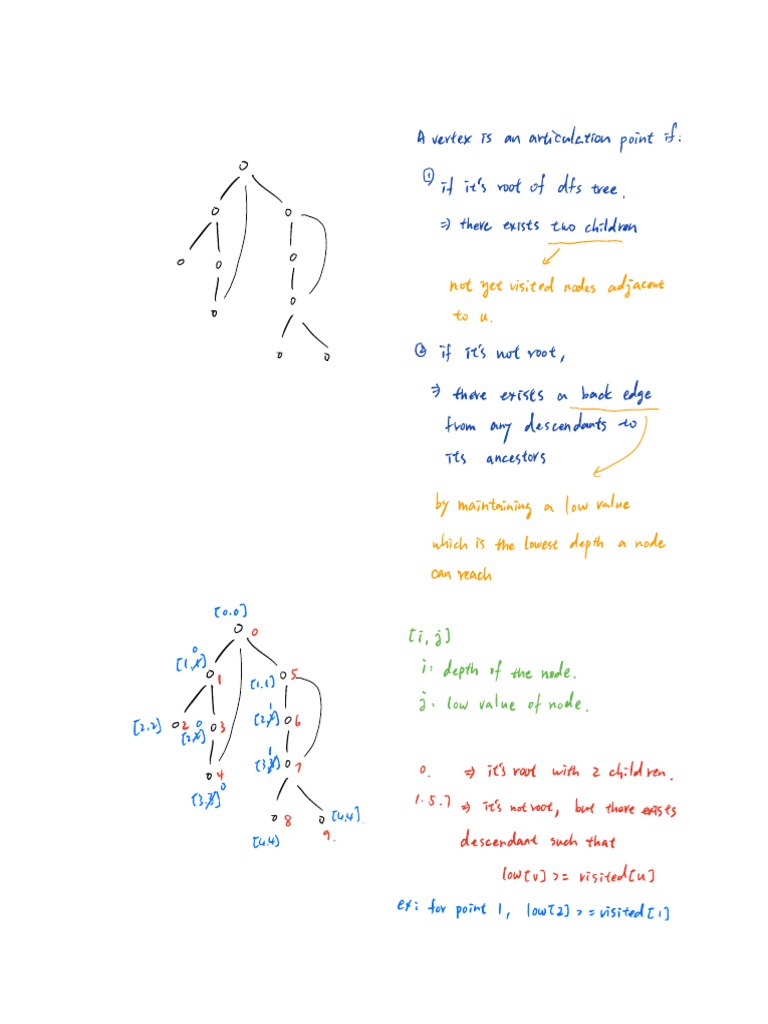 A vertex is an articulation point if:
① if it's root of dfs tree.
⇒ there exists two children
not yet visited nodes adjacent
to u.
② if it's not root,
⇒ there exists a back edge
from any descendants to
its ancestors
by maintaining a low value
which is the lowest depth a node
can reach
[0.0]
0
[i, j]
0
[1, 1]
1
[1,1]
5
i: depth of the node.
j. low value of node.
[2,2]
2
0
[2,2]
3
1
[2,2]
6
1
[3,3]
7
4
[3,3]
0
0. ⇒ it's root with 2 children.
1.5.7 ⇒ it's not root, but there exists
descendant such that
8
[4,4].
[4,4)
9.
low[v] >= visited[u]
ex: for point 1, low[2] >= visited[1]